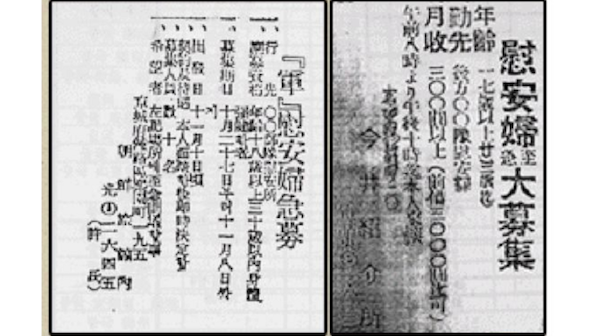 慰安婦至急大募集
年齢 一七歳以上廿三歳迄
勤先 後方〇〇隊慰安部
月收 三〇〇圓以上(前借三〇〇〇圓迄可)
午前八時より午後十時迄本人來談
今井紹介所
『軍』慰安婦急募
一、行先 〇〇部隊慰安所
一、應募資格 年齢十八歳以上三十歳以内身體
一、募集期日 十月二十七日ヨリ十一月八日
一、出發日 十一月十日頃
一、契約及待遇 本人面談ノ後即時決定
一、募集人員 數十名
一、希望者 左記場所ニ至急問議ノ事
京城府鐘路區樂園町一九五
朝鮮旅館内
六四五
(許氏)